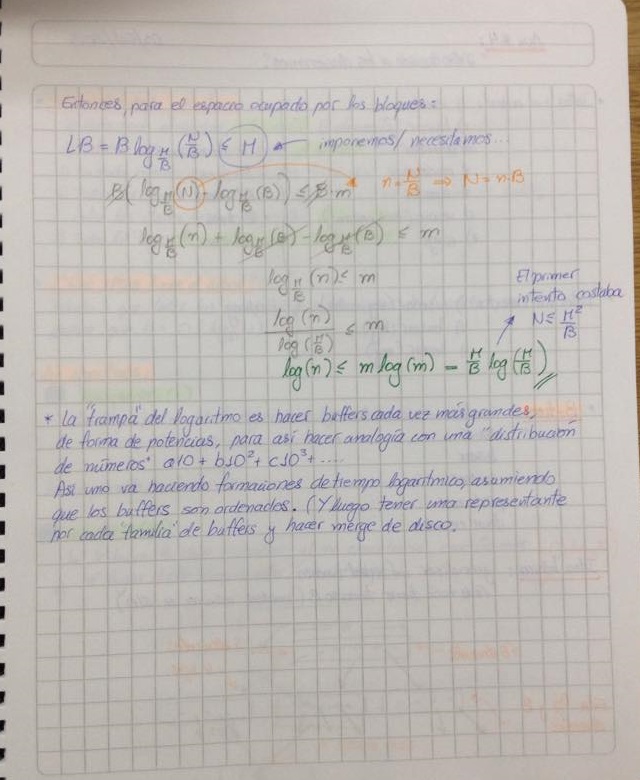 Entonces, para el espacio ocupado por los bloques:
LB = B log_{M/B} (N/B) ≤ M ← imponemos/necesitamos...
B(log_{M/B}(N) - log_{M/B}(B)) ≤ B·m n = N/B ⇒ N = n·B
log_{M/B}(n) + log_{M/B}(B) - log_{M/B}(B) ≤ m
log_{M/B}(n) ≤ m
El primer
intento costaba
N ≤ M²/B
log(n) / log(M/B) ≤ m
log(n) ≤ m log(m) = M/B log(M/B)
* La "trampa" del logaritmo es hacer buffers cada vez más grandes,
de forma de potencias, para así hacer analogía con una "distribución
de números" a10 + b10² + c10³ + ....
Así uno va haciendo formaciones de tiempo logarítmico, asumiendo
que los buffers son ordenados. (Y luego tener una representante
por cada "familia" de buffers y hacer merge de disco.